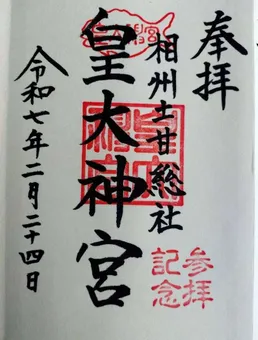 奉拝
相州土甘総社
皇大神宮
参拝
記念
令和七年二月二十四日